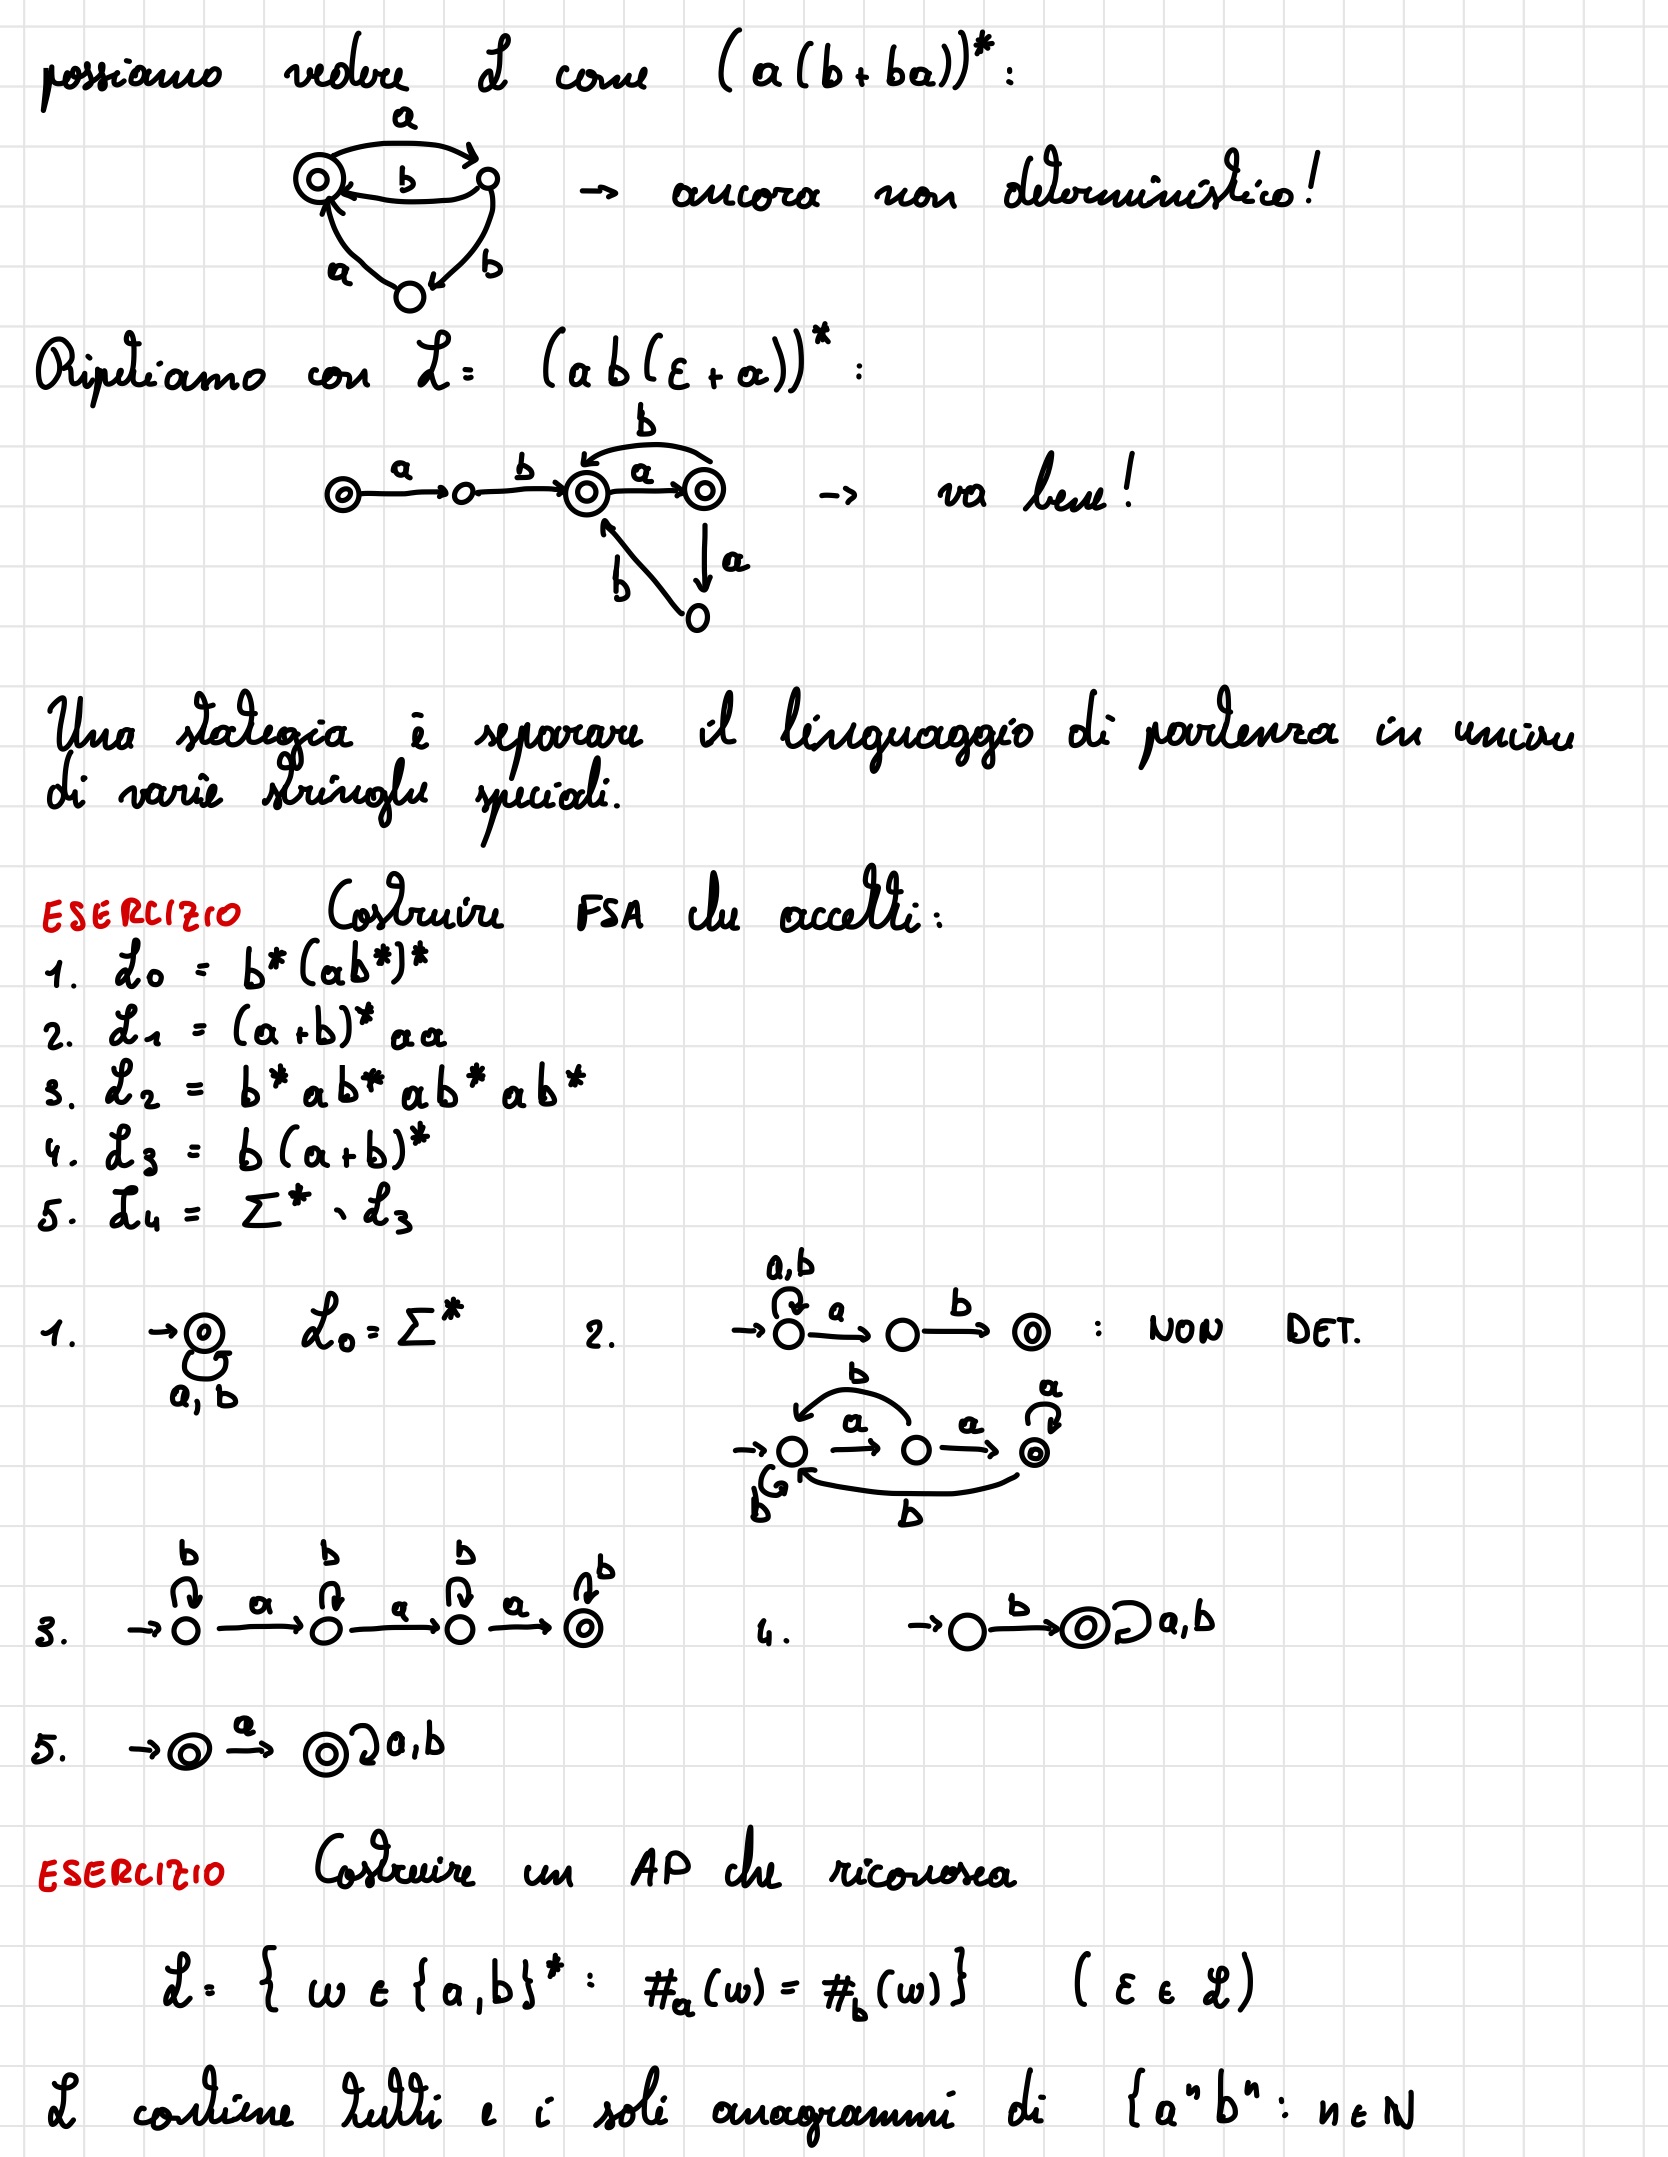 possiamo vedere L come (a(b+ba))*:
a
b → ancora non deterministico!
a b
Ripetiamo con L = (ab(ε+a))* :
b
a b a → va bene!
b a
Una stategia è separare il linguaggio di partenza in unione
di varie stringhe speciali.
ESERCIZIO Costruire FSA che accetti:
1. L₀ = b*(ab*)*
2. L₁ = (a+b)* aa
3. L₂ = b* ab* ab* ab*
4. L₃ = b(a+b)*
5. L₄ = Σ* \ L₃
a,b
1. → L₀ = Σ* 2. → a b : NON DET.
a, b
b a
→ a a
b b
b b b b
3. → a a a 4. → b a,b
5. → a a,b
ESERCIZIO Costruire un AP che riconosca
L = { w ∈ {a,b}* : #ₐ(w) = #b(w)} (ε ∈ L)
L contiene tutti e i soli anagrammi di {aⁿbⁿ : n ∈ ℕ